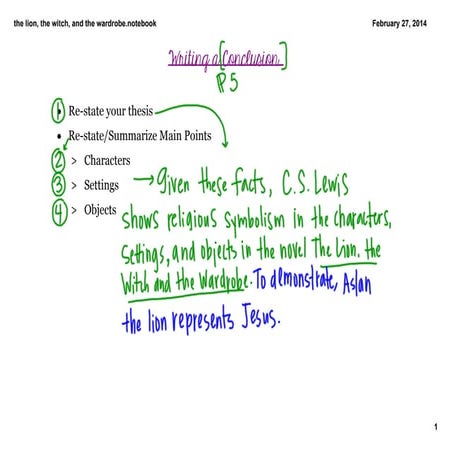 the lion, the witch, and the wardrobe.notebook February 27, 2014
Writing a [Conclusion.]
IP 5
1 • Re-state your thesis
• Re-state/Summarize Main Points
2 > Characters
3 > Settings
4 > Objects
→ Given these facts, C.S. Lewis
shows religious symbolism in the characters,
settings, and objects in the novel The Lion, the
Witch and the Wardrobe. To demonstrate, Aslan
the lion represents Jesus.
1